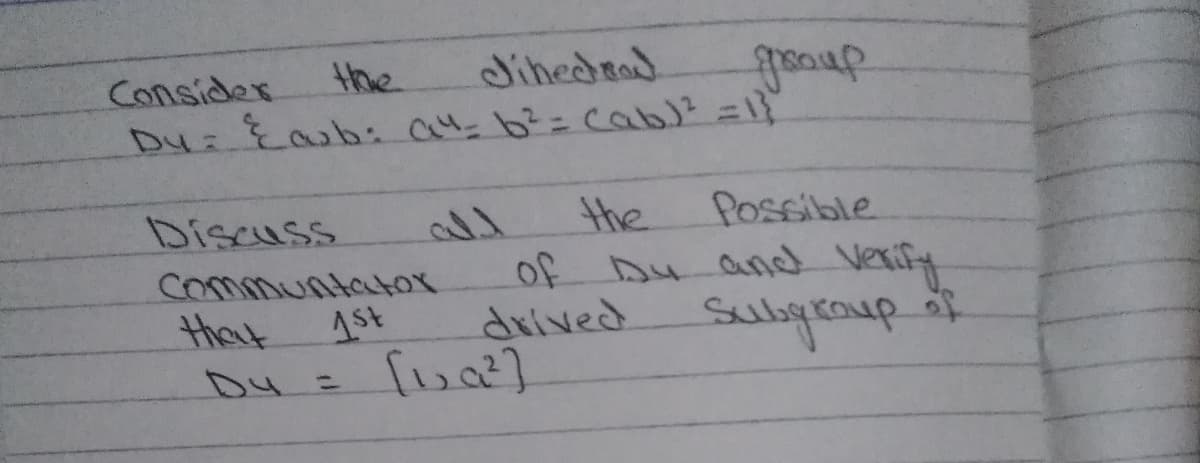 Consider the dihedral group
D4 = {a,b: a⁴= b² = (ab)² =1}
Discuss all the Possible
Communtator of D4 and Verify
that 1st drived Subgroup of
D4 = [1, a²]